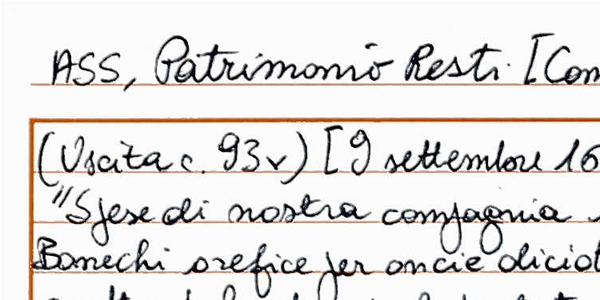 ASS, Patrimonio Resti. [Con
(Uscita c. 93v) [9 settembre 16
"Spese di nostra compagnia
Bonechi orefice per oncie diciot